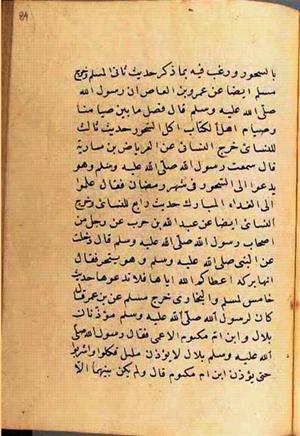 84
بالسحور ورغب فيه بما ذكر حديث ثانى المسلم خرج
مسلم ايضا عن عمرو بن العاص ان رسول الله
صلى الله عليه وسلم قال فصل ما بين صيامنا
وصيام اهل الكتاب اكل السحور حديث ثالث
للنسائى خرج النسائى عن العرباض بن سارية
قال سمعت رسول الله صلى الله عليه وسلم وهو
يدعوا الى السحور فى شهر رمضان فقال هلموا
الى الغداء المبارك حديث رابع للنسائى وخرج
النسائى ايضا عن عبد الله بن حرب عن رجل من
اصحاب رسول الله صلى الله عليه وسلم قال دخلت
على النبى صلى الله عليه وسلم وهو يتسحر فقال
انها بركة اعطاكم الله اياها فلا تدعوها حديث
خامس لمسلم والبخارى خرج مسلم عن بن عمر قال
كان لرسول الله صلى الله عليه وسلم مؤذنان
بلال وابن ام مكتوم الاعمى فقال رسول الله صلى
الله عليه وسلم بلال لا يؤذن بليل فكلوا واشربوا
حتى يؤذن ابن ام مكتوم قال ولم يكن بينهما الا